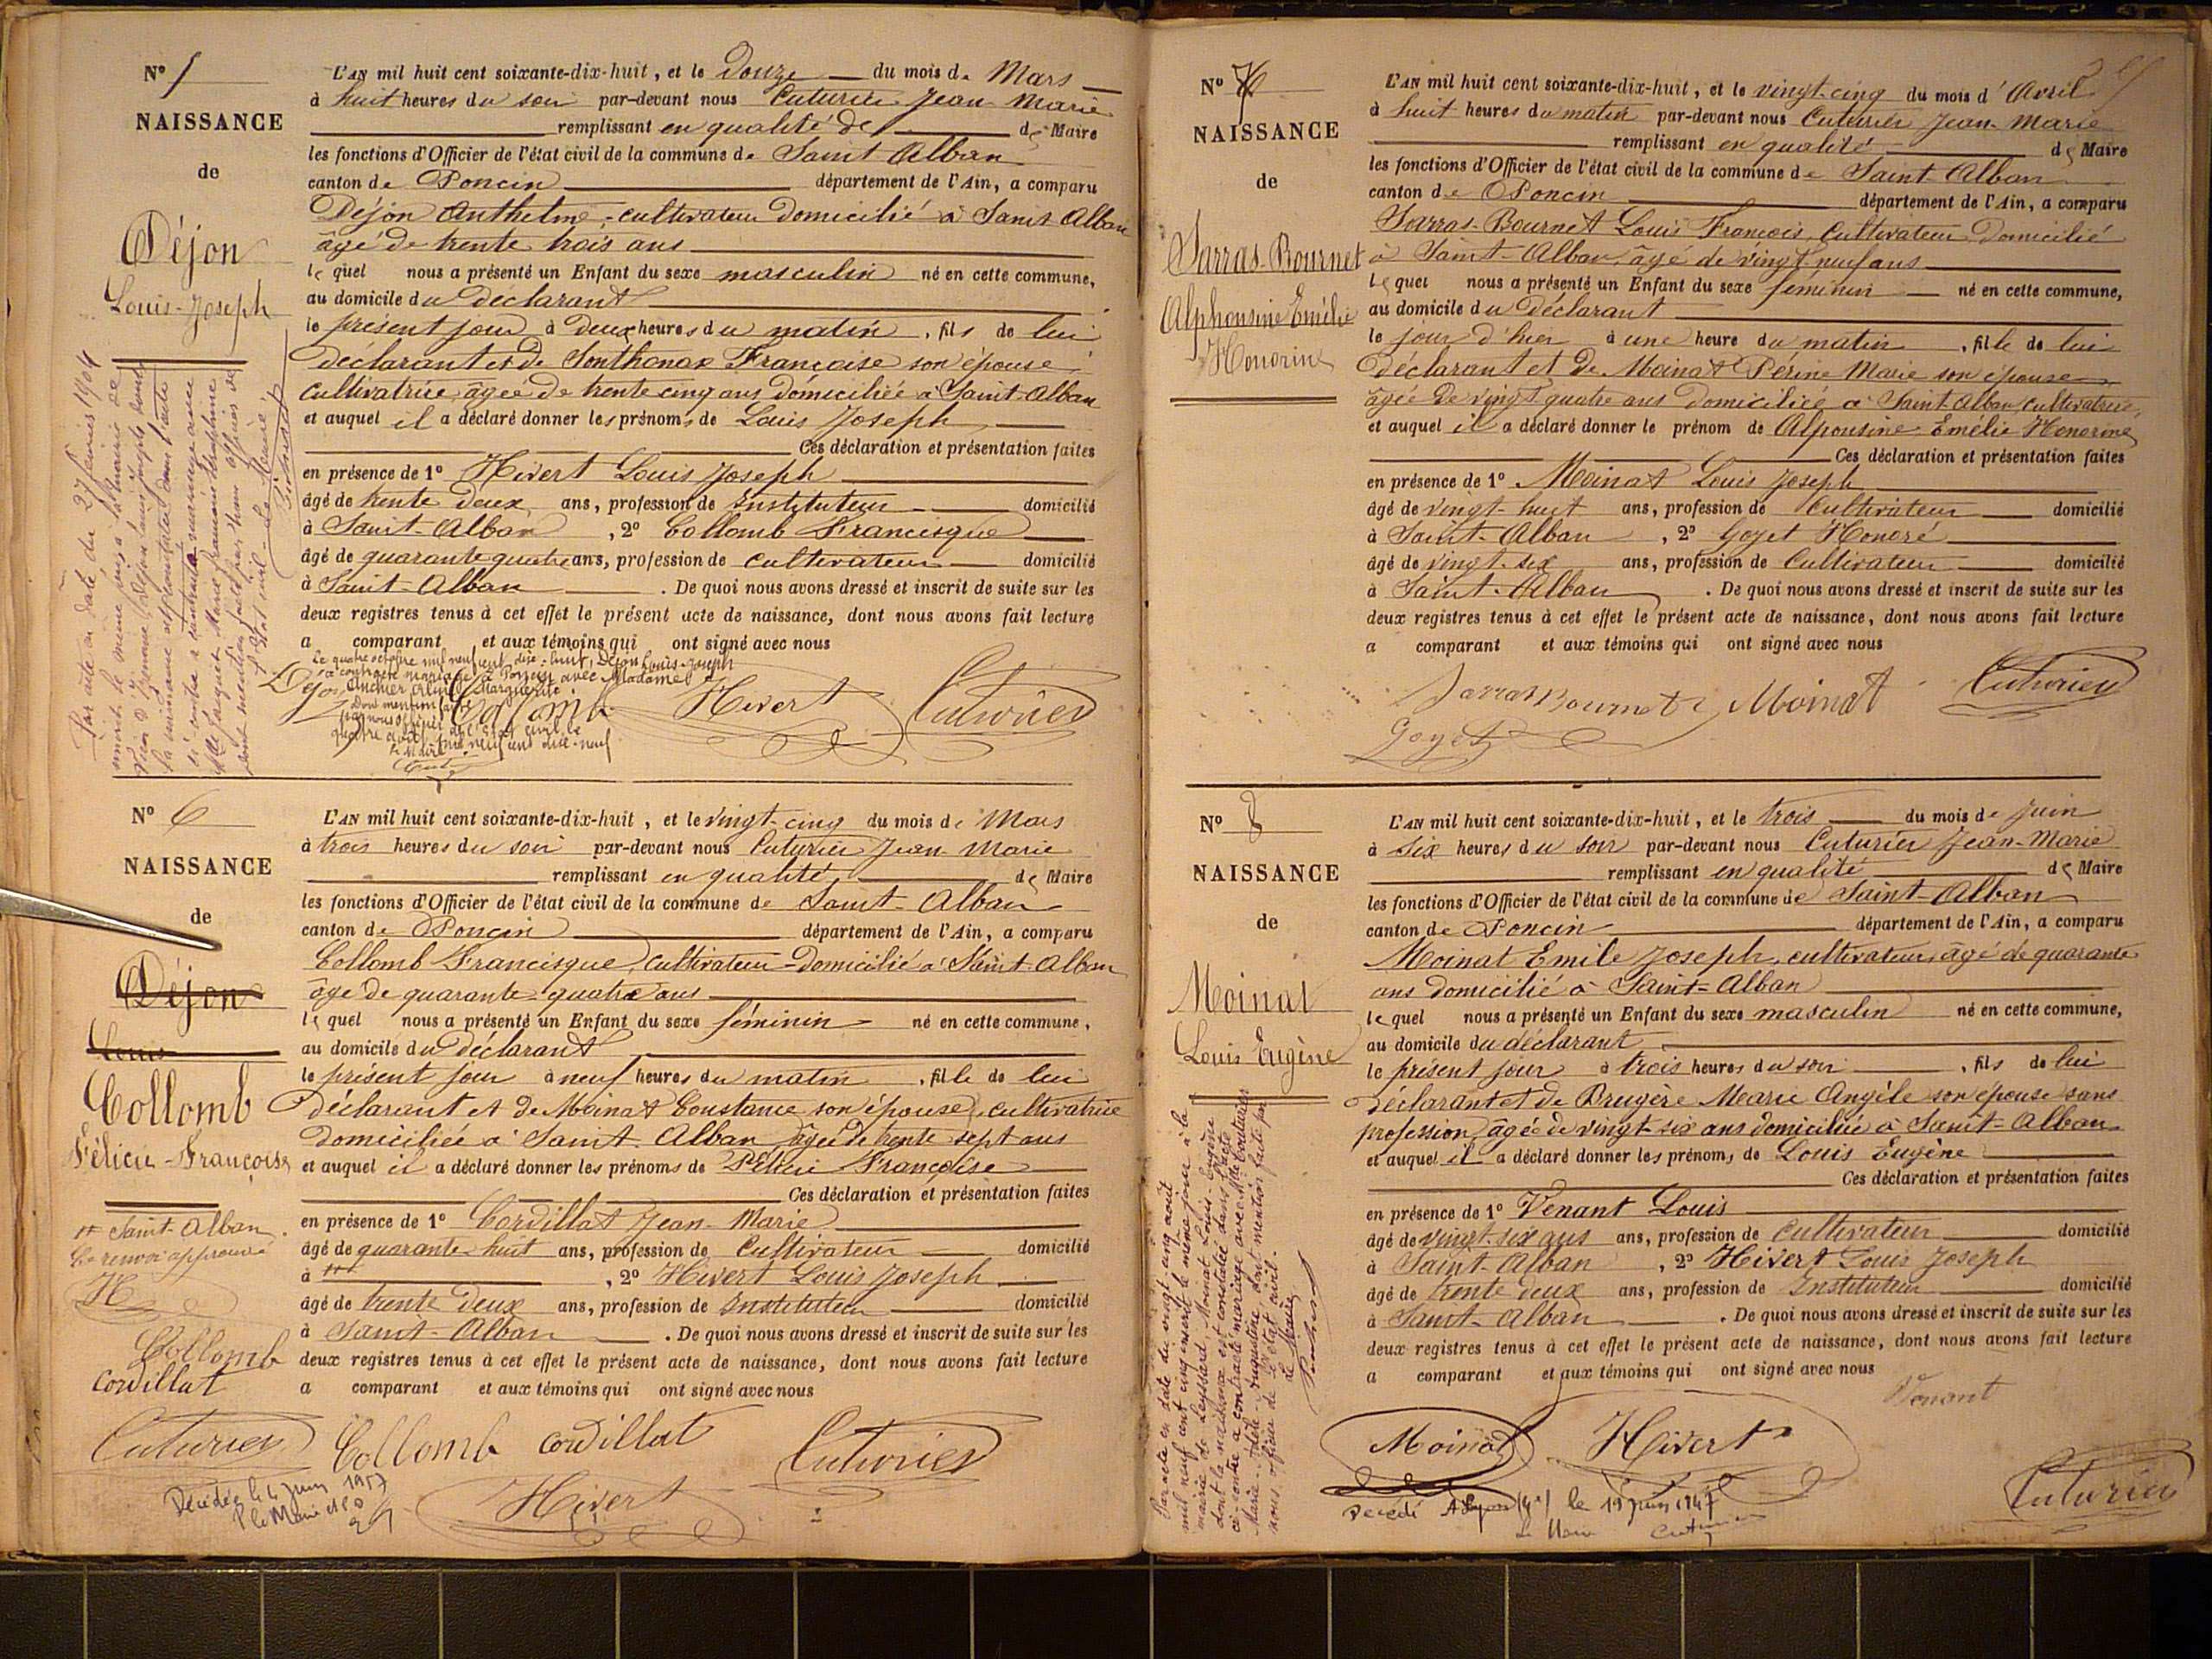 N° 5
NAISSANCE
de
Déjon
Louis-Joseph
L'AN mil huit cent soixante-dix-huit, et le Douze du mois de Mars
à huit heures du soir par-devant nous Cuturier Jean Marie
remplissant en qualité de de Maire
les fonctions d'Officier de l'état civil de la commune de Saint Alban
canton de Poncin département de l'Ain, a comparu
Déjon Anthelme, cultivateur domicilié à Saint Alban
âgé de trente trois ans
lequel nous a présenté un Enfant du sexe masculin né en cette commune,
au domicile du déclarant
le présent jour à deux heures du matin, fils de lui
déclarant et de Sonthonax Françoise son épouse,
cultivatrice, âgée de trente cinq ans domiciliée à Saint-Alban
et auquel il a déclaré donner les prénoms de Louis Joseph
Ces déclaration et présentation faites
en présence de 1° Hivert Louis Joseph
âgé de trente deux ans, profession de Instituteur domicilié
à Saint-Alban, 2° Collomb Francisque
âgé de quarante quatre ans, profession de cultivateur domicilié
à Saint-Alban. De quoi nous avons dressé et inscrit de suite sur les
deux registres tenus à cet effet le présent acte de naissance, dont nous avons fait lecture
a comparant et aux témoins qui ont signé avec nous
Le quatre octobre mil neuf cent dix-huit, Déjon Louis-Joseph
a contracté mariage à Poncin avec Madame
Marguerite
Dont mention faite
par nous officier de l'état civil le
quatre août mil neuf cent dix-neuf
Le Maire
Déjon Collomb Hivert Cuturier
Par acte en date du 27 février 1904
N° 6
NAISSANCE
de
Déjon
Louis
Collomb
Félicie-Françoise
L'AN mil huit cent soixante-dix-huit, et le vingt-cinq du mois de Mars
à trois heures du soir par-devant nous Cuturier Jean Marie
remplissant en qualité de Maire
les fonctions d'Officier de l'état civil de la commune de Saint-Alban
canton de Poncin département de l'Ain, a comparu
Collomb Francisque, cultivateur domicilié à Saint-Alban
âgé de quarante quatre ans
lequel nous a présenté un Enfant du sexe féminin né en cette commune,
au domicile du déclarant
le présent jour à neuf heures du matin, fille de lui
déclarant et de Moinat Constance son épouse, cultivatrice
domiciliée à Saint-Alban âgée de trente sept ans
et auquel il a déclaré donner les prénoms de Félicie Françoise
Ces déclaration et présentation faites
en présence de 1° Cordillat Jean-Marie
âgé de quarante huit ans, profession de Cultivateur domicilié
à, 2° Hivert Louis Joseph
âgé de trente deux ans, profession de Instituteur domicilié
à Saint-Alban. De quoi nous avons dressé et inscrit de suite sur les
deux registres tenus à cet effet le présent acte de naissance, dont nous avons fait lecture
a comparant et aux témoins qui ont signé avec nous
Saint-Alban
Le renvoi approuvé
H
Collomb
Cordillat
Cuturier Collomb Cordillat Cuturier
Hivert
Décédée le 4 juin 1957
N° 7
NAISSANCE
de
Sarras-Bournet
Alphonsine Emélie
Honorine
L'AN mil huit cent soixante-dix-huit, et le vingt-cinq du mois d'Avril
à huit heures du matin par-devant nous Cuturier Jean-Marie
remplissant en qualité de Maire
les fonctions d'Officier de l'état civil de la commune de Saint-Alban
canton de Poncin département de l'Ain, a comparu
Sarras-Bournet Louis François, Cultivateur domicilié
à Saint-Alban âgé de vingt neuf ans
lequel nous a présenté un Enfant du sexe féminin né en cette commune,
au domicile du déclarant
le jour d'hier à une heure du matin, fille de lui
déclarant et de Moinat Périne Marie son épouse
âgée de vingt quatre ans domiciliée à Saint-Alban, cultivatrice,
et auquel il a déclaré donner le prénom de Alponsine Emélie Honorine
Ces déclaration et présentation faites
en présence de 1° Moinat Louis Joseph
âgé de vingt-huit ans, profession de Cultivateur domicilié
à Saint-Alban, 2° Goyet Honoré
âgé de vingt-six ans, profession de Cultivateur domicilié
à Saint-Alban. De quoi nous avons dressé et inscrit de suite sur les
deux registres tenus à cet effet le présent acte de naissance, dont nous avons fait lecture
a comparant et aux témoins qui ont signé avec nous
Sarras Bournet Moinat Cuturier
Goyet
N° 8
NAISSANCE
de
Moinat
Louis Eugène
L'AN mil huit cent soixante-dix-huit, et le trois du mois de juin
à six heures du soir par-devant nous Cuturier Jean-Marie
remplissant en qualité de Maire
les fonctions d'Officier de l'état civil de la commune de Saint-Alban
canton de Poncin département de l'Ain, a comparu
Moinat Emile Joseph, cultivateur, âgé de quarante
ans domicilié à Saint-Alban
lequel nous a présenté un Enfant du sexe masculin né en cette commune,
au domicile du déclarant
le présent jour à trois heures du soir, fils de lui
déclarant et de Brugère Marie Angèle son épouse sans
profession, âgée de vingt-six ans domiciliée à Saint-Alban
et auquel il a déclaré donner les prénoms de Louis Eugène
Ces déclaration et présentation faites
en présence de 1° Venant Louis
âgé de vingt-six ans ans, profession de Cultivateur domicilié
à Saint-Alban, 2° Hivert Louis Joseph
âgé de trente deux ans, profession de Instituteur domicilié
à Saint-Alban. De quoi nous avons dressé et inscrit de suite sur les
deux registres tenus à cet effet le présent acte de naissance, dont nous avons fait lecture
a comparant et aux témoins qui ont signé avec nous
Venant
Moinat Hivert
Cuturier
Par acte en date du vingt cinq août
mil neuf cent cinq inscrit le même jour à la
mairie de Leyssard, Moinat Louis-Eugène
dont la naissance est constatée dans l'acte
ci-contre a contracté mariage avec
nous officier de l'état civil.
Le Maire
Décédé à Lyon le 19 juin 1947
Le Maire